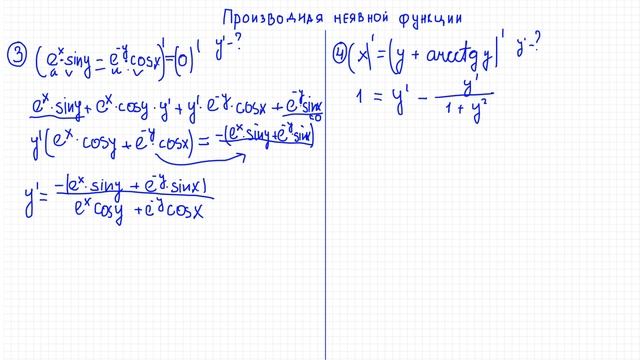 Производная неявной функции
③ (eˣ·siny − e⁻ʸcosx)' = (0)' y' - ?
u v u · v
eˣ·siny + eˣ·cosy·y' + y'·e⁻ʸ·cosx + e⁻ʸsinx = 0
y'(eˣ·cosy + e⁻ʸ·cosx) = −(eˣ·siny + e⁻ʸsinx)
y' = −(eˣ·siny + e⁻ʸ·sinx) / (eˣcosy + e⁻ʸcosx)
④ (x)' = (y + arcctg y)' y' - ?
1 = y' − y' / (1 + y²)